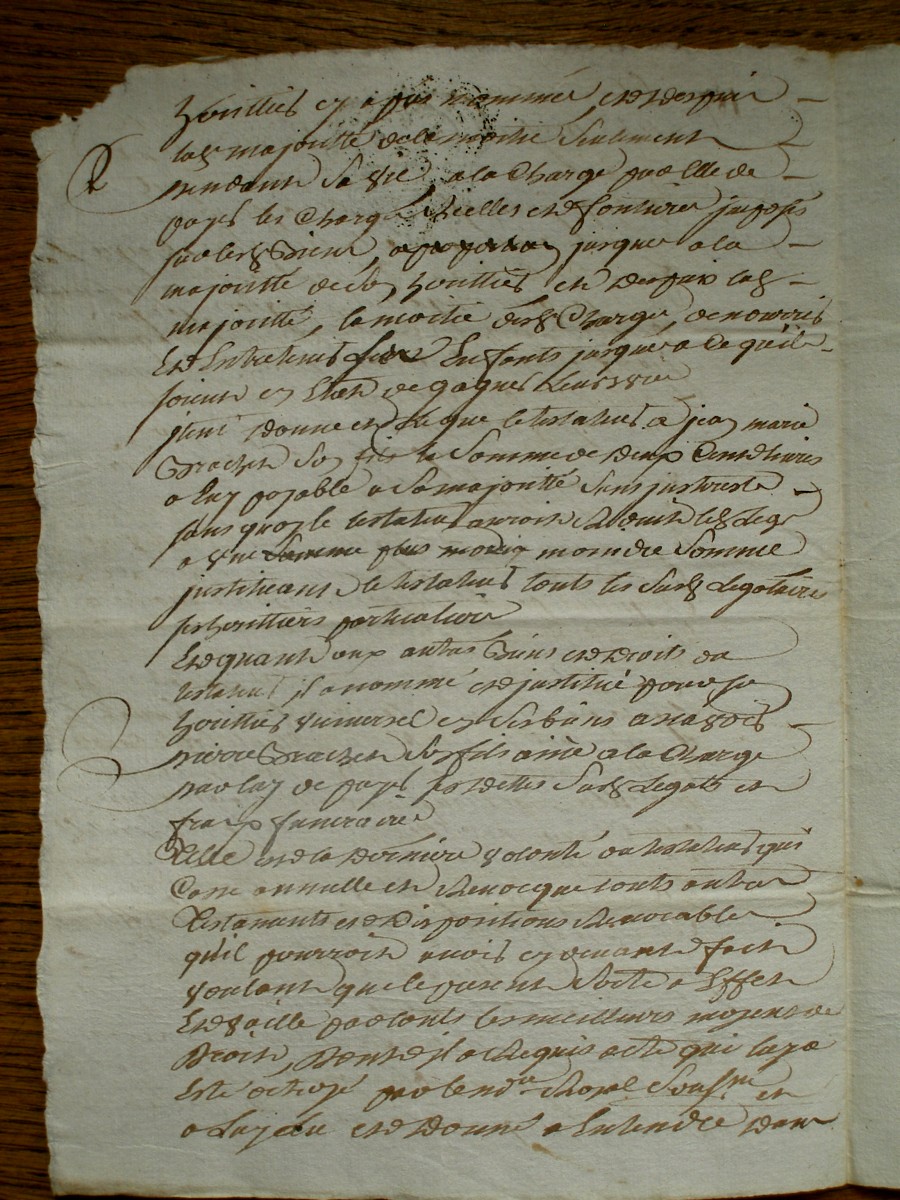 hérittier cy apres nommé, et despuis
lad majorité de la moitié seulement
pendant sa vie, a la charge par elle de
payer les charges réelles et fontieres imposés
sur lesd biens, a proportion jusques a la
majorité de son hérittier et despuis lad
majorité, la moitié desd charges, de nourrir
et entretenir ses enfants jusques a ce quils
soient en etat de gagner leur vie
item donne et legue le testateur a jean marie
son fils la somme de deux cent livres
a luy payable a sa majorité sans interest
sans quoy le testateur auroit reduit led legs
a une somme plus moindre somme
instituant le testateur touts les susd legataires
ses herittiers particuliers
Et quant aux autres biens et droits du
testateur il a nommé et institué pour son
hérittier universel en ses biens a scavoir
pierre son fils ainé a la charge
par luy de payer ses dettes susd legats et
fraix funeraires
Telle est la derniere volonté du testateur qui
casse annulle et revocque touts autres
testaments et dispositions revocables
qu'il pourroit avoir cy devant fait
voulant que le present sorte a effet
et vaille par touts les meilleurs moyens de
droit, dont il a requis acte qui luy a
esté octroyé par le nore royal soussné et
a luy leu et donné a entendre dans